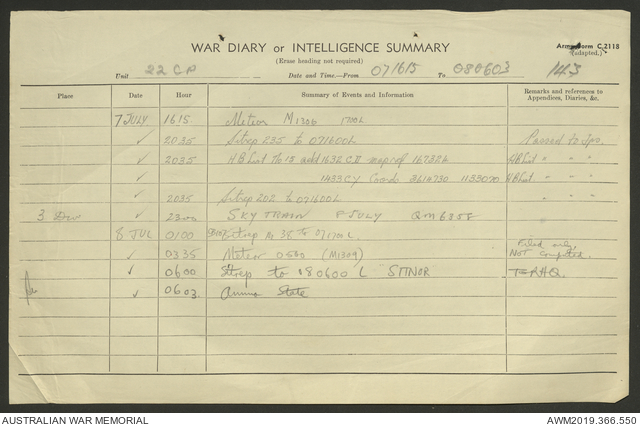 WAR DIARY or INTELLIGENCE SUMMARY
(Erase heading not required)
Army Form C.2118
(adapted.)
Unit 22 C.P Date and Time.—From 071615 To 080603 143
Place Date Hour Summary of Events and Information Remarks and references to Appendices, Diaries, &c.
7 JULY 1615 Meteor M1306 1700L
✓ 2035 Sitrep 235 to 071600L Passed to
✓ 2035 HB List No 15 add 1632 C.II map ref 167326 HB List " "
✓ 1433 CY Coords 3614730 1133070 HB List " "
✓ 2035 Sitrep 202 to 071600L " "
3 Div ✓ 2300 SKYTRAIN 8 JULY QM6358
8 JUL 0100 Sitrep No 38 to 071700L
✓ 0335 Meteor 0500 (M1309) Filed only, NOT Computed.
✓ 0600 Sitrep to 080600 L SITNOR
✓ 0603 Ammo State
AUSTRALIAN WAR MEMORIAL
AWM2019.366.550